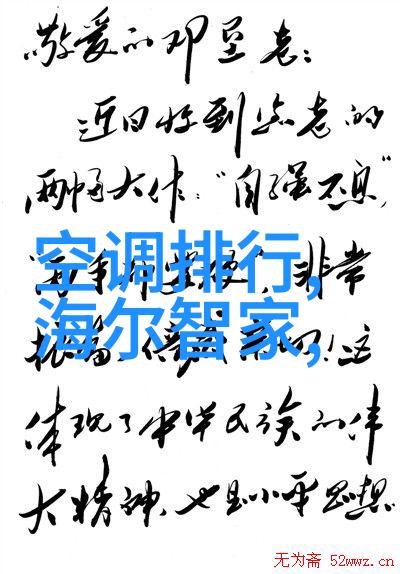 敬爱的邓垦老:
近日收到您老的
两幅大作:"自强不息",
空调排行,
非常
海尔智家,
这
体现了中华民族的伟
大精神,也是小平思想
无为斋 52wwz.cn